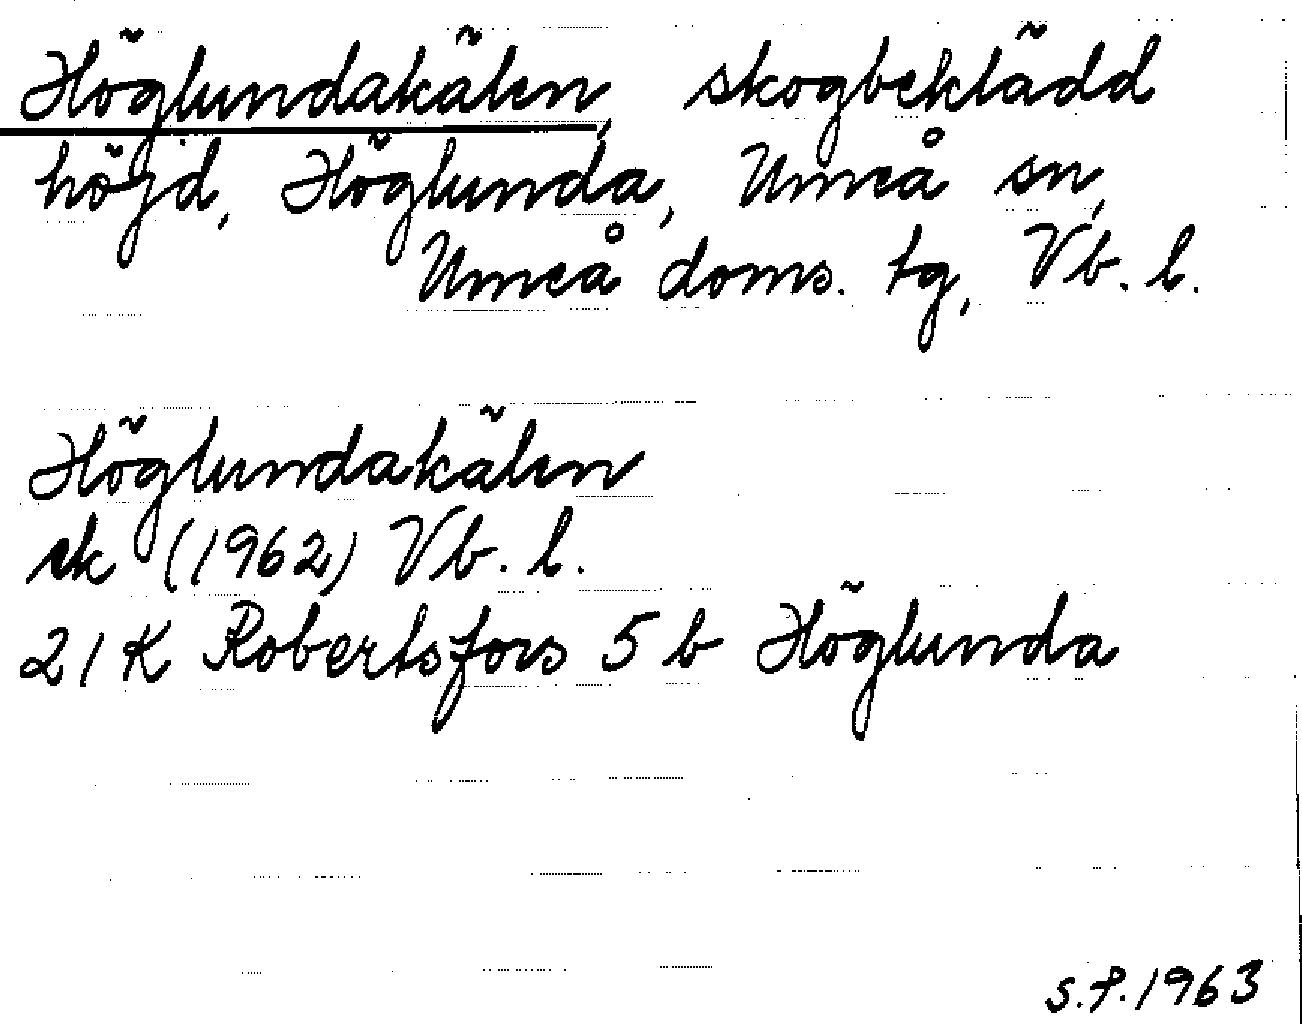 Höglundakälen, skogbeklädd
höjd, Höglunda, Umeå sn,
Umeå doms. tg, Vb. l.
Höglundakälen
ek (1962) Vb. l.
21 K Robertsfors 5 b Höglunda
S.P. 1963